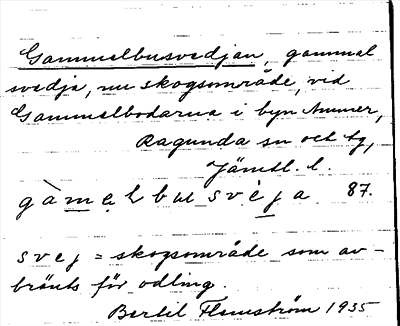 Gammelbusvedjan, gammal
svedja, nu skogsområde, vid
Gammelbodarna i byn Ammer,
Ragunda sn och tg,
Jämtl. l.
gàmeḷbusvèja 87.
svej = skogsområde som av-
bränts för odling.
Bertil Flemström 1935